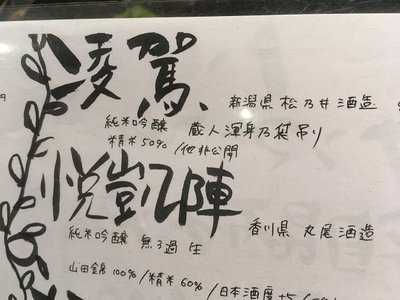 凌駕
新潟県 松乃井酒造
純米吟醸 蔵人渾身乃袋吊り
精米50% /他非公開
悦凱陣
香川県 丸尾酒造
純米吟醸 無ろ過 生
山田錦 100% /精米 60% /日本酒度 +5 /60%